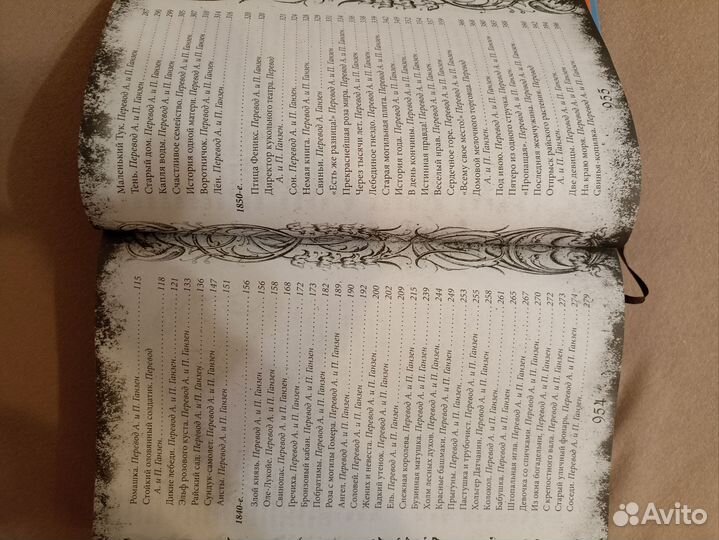 Ромашка. Перевод А. и П. Ганзен 115
Стойкий оловянный солдатик. Перевод
А. и П. Ганзен 118
Дикие лебеди. Перевод А. и П. Ганзен 121
Эльф розового куста. Перевод А. и П. Ганзен 133
Райский сад. Перевод А. и П. Ганзен 136
Сундук-самолет. Перевод А. и П. Ганзен 147
Аисты. Перевод А. и П. Ганзен 151
1840-е 156
Злой князь. Перевод А. и П. Ганзен 156
Оле-Лукойе. Перевод А. и П. Ганзен 158
Свинопас. Перевод А. и П. Ганзен 168
Гречиха. Перевод А. и П. Ганзен 172
Бронзовый кабан. Перевод А. и П. Ганзен 173
Побратимы. Перевод А. и П. Ганзен 182
Роза с могилы Гомера. Перевод А. и П. Ганзен 189
Ангел. Перевод А. и П. Ганзен 190
Соловей. Перевод А. и П. Ганзен 192
Жених и невеста. Перевод А. и П. Ганзен 200
Гадкий утенок. Перевод А. и П. Ганзен 202
Ель. Перевод А. и П. Ганзен 209
Снежная королева. Перевод А. и П. Ганзен 215
Бузинная матушка. Перевод А. и П. Ганзен 239
Холм лесных духов. Перевод А. и П. Ганзен 244
Красные башмаки. Перевод А. и П. Ганзен 249
Прыгуны. Перевод А. и П. Ганзен 253
Пастушка и трубочист. Перевод А. и П. Ганзен 255
Хольгер Датчанин. Перевод А. и П. Ганзен 258
Колокол. Перевод А. и П. Ганзен 261
Бабушка. Перевод А. и П. Ганзен 265
Штопальная игла. Перевод А. и П. Ганзен 267
Девочка со спичками. Перевод А. и П. Ганзен 270
Из окна богадельни. Перевод А. и П. Ганзен 272
С крепостного вала. Перевод А. и П. Ганзен 273
Старый уличный фонарь. Перевод А. и П. Ганзен 274
Соседи. Перевод А. и П. Ганзен 279
954
Маленький Тук. Перевод А. и П. Ганзен 287
Тень. Перевод А. и П. Ганзен
Старый дом. Перевод А. и П. Ганзен
Капля воды. Перевод А. и П. Ганзен
Счастливое семейство. Перевод А. и П. Ганзен
История одной матери. Перевод А. и П. Ганзен
Воротничок. Перевод А. и П. Ганзен
Лён. Перевод А. и П. Ганзен 316
1850-е 320
Птица Феникс. Перевод А. и П. Ганзен 320
Директор кукольного театра. Перевод
А. и П. Ганзен
Сон. Перевод А. и П. Ганзен
Немая книга. Перевод А. и П. Ганзен
Свиньи. Перевод А. и П. Ганзен
«Есть же разница!» Перевод А. и П. Ганзен
Прекраснейшая роза мира. Перевод А. и П. Ганзен
Через тысячи лет. Перевод А. и П. Ганзен
Лебединое гнездо. Перевод А. и П. Ганзен
Старая могильная плита. Перевод А. и П. Ганзен
История года. Перевод А. и П. Ганзен
В день кончины. Перевод А. и П. Ганзен
Истинная правда! Перевод А. и П. Ганзен
Веселый нрав. Перевод А. и П. Ганзен
Сердечное горе. Перевод А. и П. Ганзен
«Всему свое место!» Перевод А. и П. Ганзен
Домовой мелочного торговца. Перевод
А. и П. Ганзен
Под ивою. Перевод А. и П. Ганзен
Пятеро из одного стручка. Перевод А. и П. Ганзен
«Пропащая». Перевод А. и П. Ганзен
Последняя жемчужина. Перевод
Отпрыск райского растения. Перевод
А. и П. Ганзен
Две девицы. Перевод А. и П. Ганзен
На краю моря. Перевод А. и П. Ганзен
Свинья-копилка. Перевод А. и П. Ганзен
955
Avito